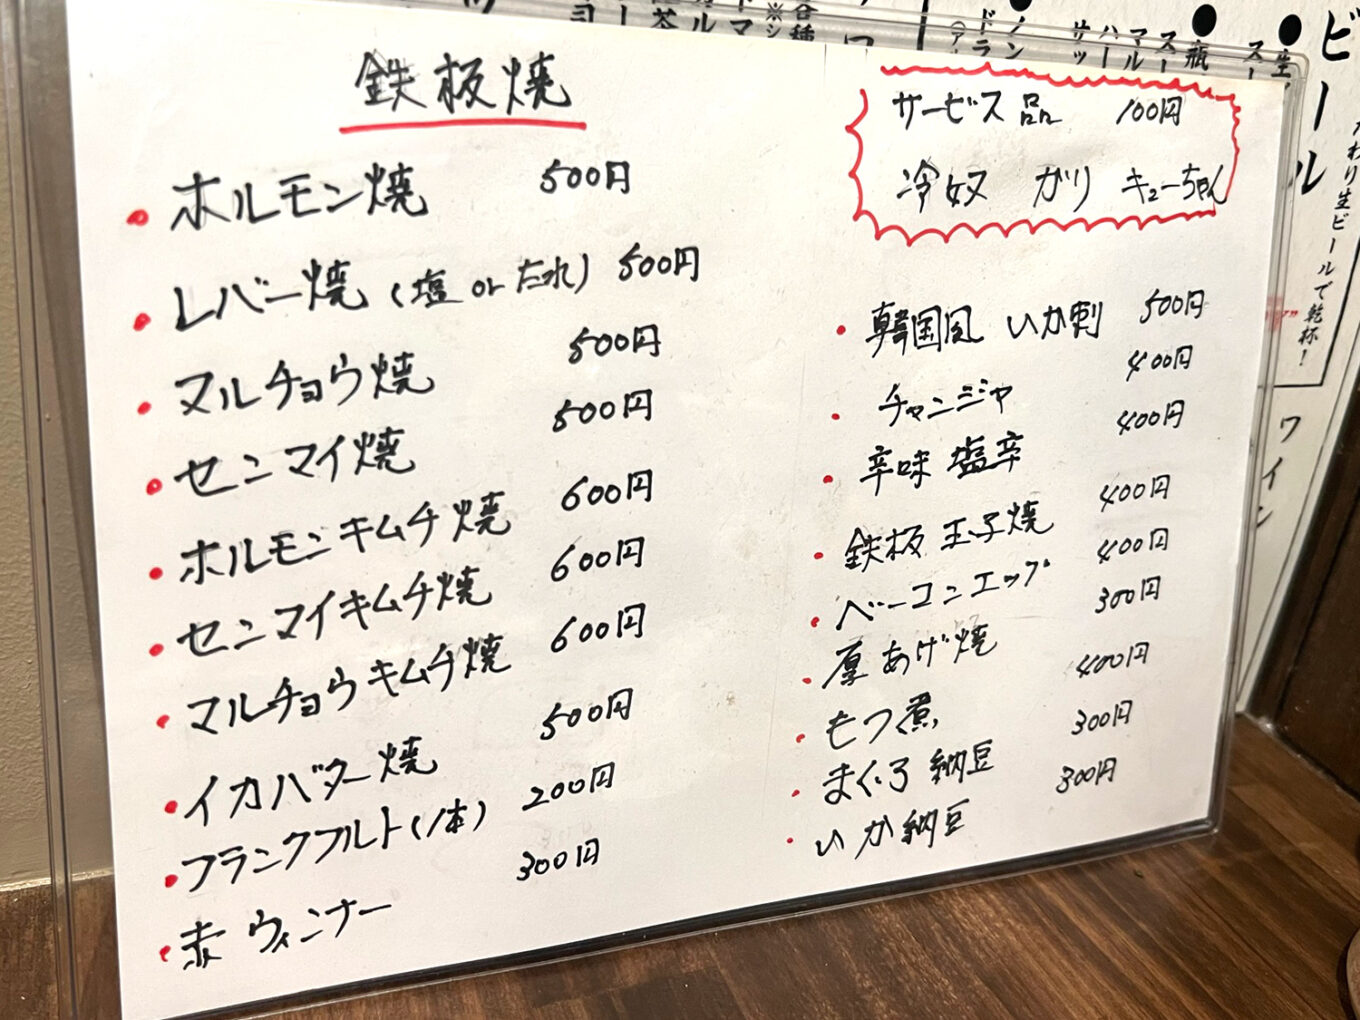 鉄板焼
・ホルモン焼 500円
・レバー焼(塩orたれ) 500円
・マルチョウ焼 500円
・センマイ焼 500円
・ホルモンキムチ焼 600円
・センマイキムチ焼 600円
・マルチョウキムチ焼 600円
・イカバター焼 500円
・フランクフルト(1本) 200円
・赤ウィンナー 300円
サービス品 100円
冷奴 ガリ キューちゃん
・韓国風 いか刺 500円
・チャンジャ 400円
・辛味 塩辛 400円
・鉄板 玉子焼 400円
・ベーコンエッグ 400円
・厚あげ焼 300円
・もつ煮 400円
・まぐろ納豆 300円
・いか納豆 300円
ビール
わり生ビールで乾杯!
ワイン